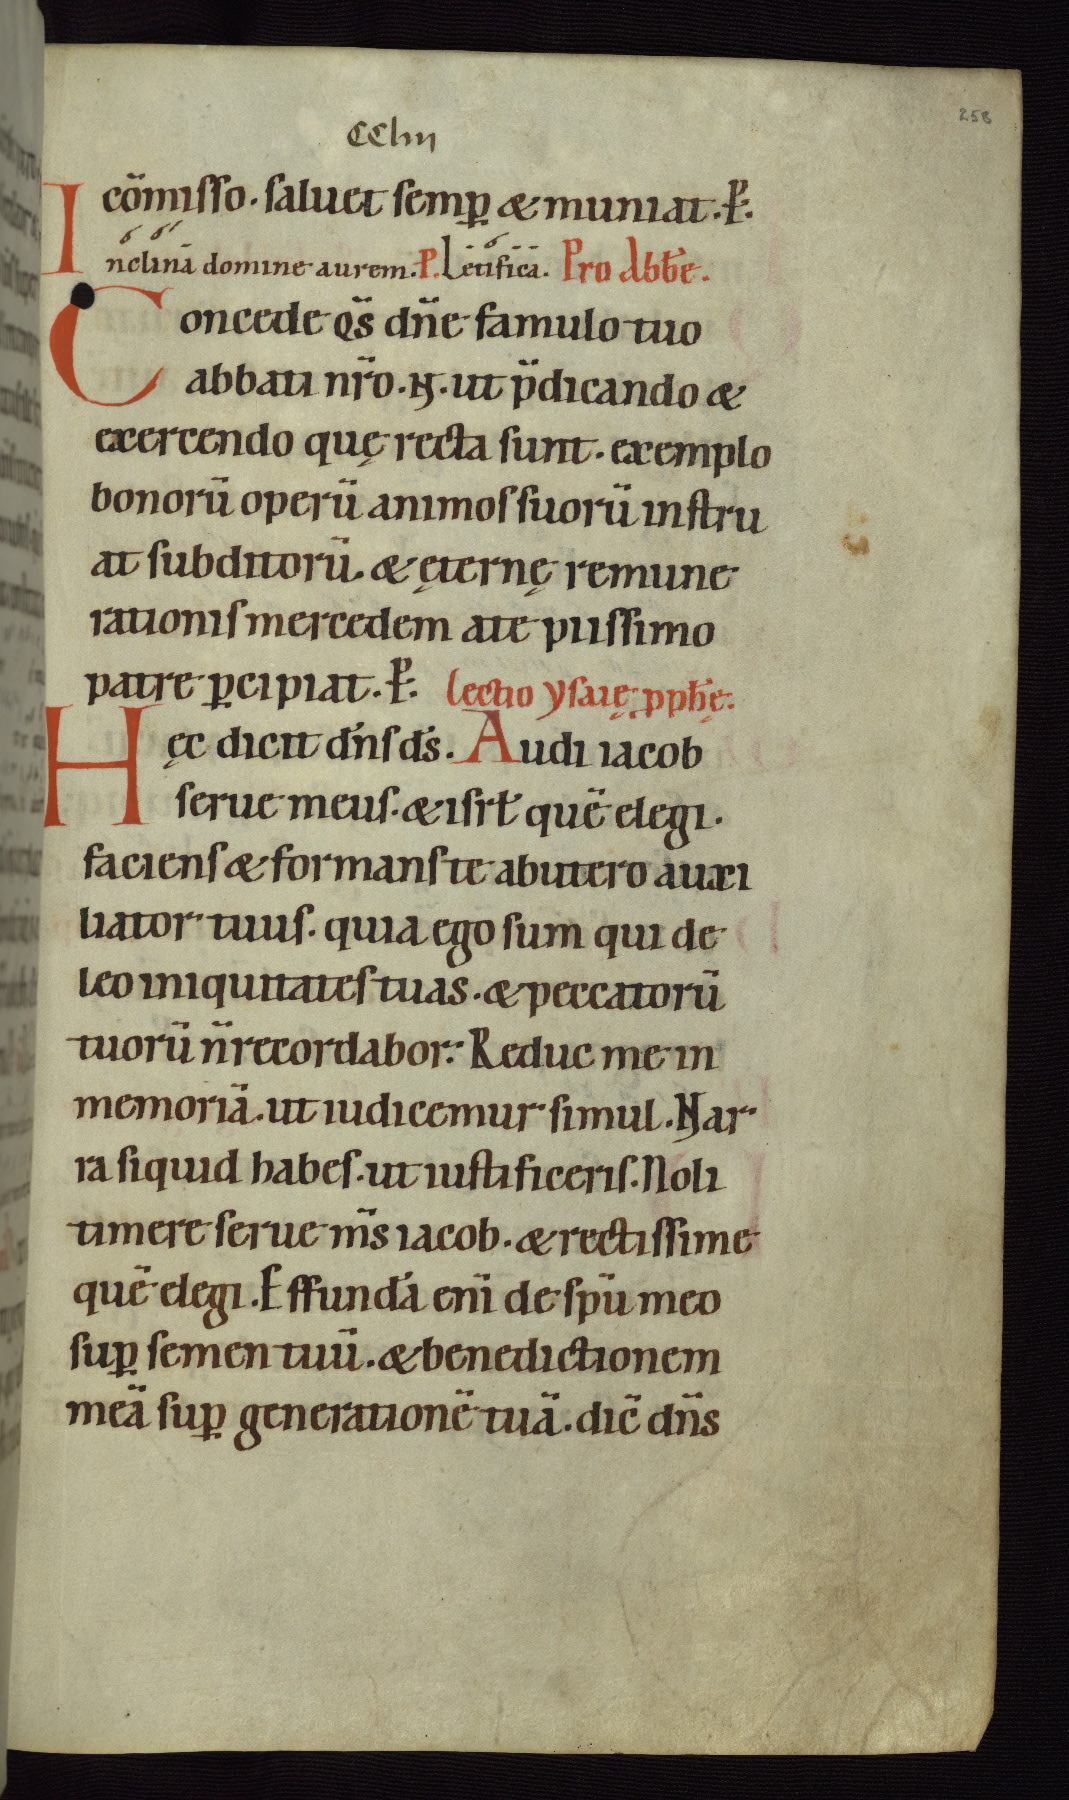 258
CCliii
cōmisso. saluet semp̱ & muniat. P̱.
Inclinā domine aurem. P. Letificā. Pro Abb̄e.
Concede q̄s dn̄e famulo tuo
abbati nr̄o. N. ut p̄dicando &
exercendo quę recta sunt. exemplo
bonorū operū animos suorū instru
at subditorū. & ęternę remune
rationis mercedem a te piissimo
patre p̱cipiat. P̱. Lectio ysaię pph̄ę.
Hęc dicit dn̄s ds̄. Audi iacob
serue meus. & isrł quē elegi.
faciens & formans te ab utero auxi
liator tuus. quia ego sum qui de
leo iniquitates tuas. & peccatorū
tuorū n̄ recordabor. Reduc me in
memoriā. ut iudicemur simul. Nar
ra siquid habes. ut iustificeris. Noli
timere serue ms̄ iacob. & rectissime
quē elegi. Effundā enī de spū meo
sup̱ semen tuū. & benedictionem
meā sup̱ generationē tuā. dic̄ dn̄s